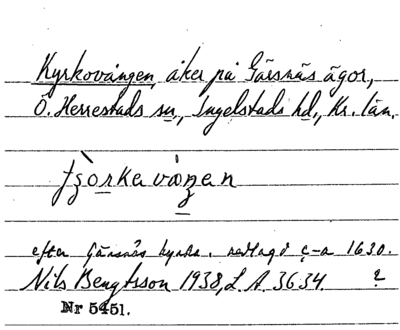 Kyrkovången, åker på Gärsnäs ägor,
Ö. Herrestads sn, Ingelstads hd, Kr. län.
efter Gärsnäs kyrka, nedlagd c-a 1630.
Nils Bengtsson 1938, L.A. 3634. 2
Nr 5451.